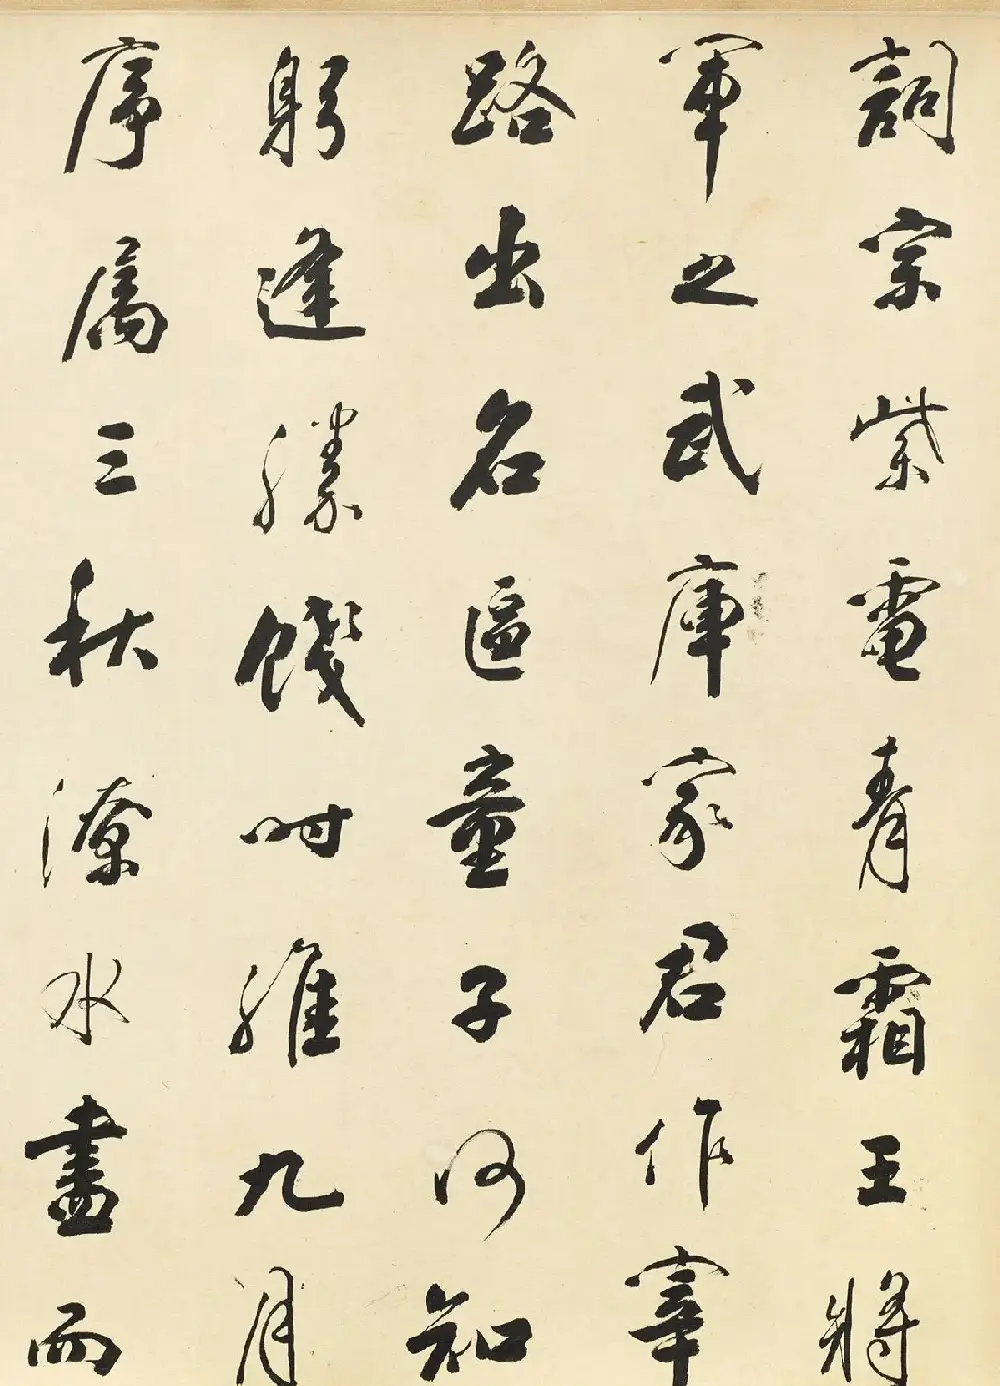 詞宗紫電青霜王將
軍之武庫家君作宰
路出名區童子何知
躬逢勝餞时維九月
序属三秋潦水盡而